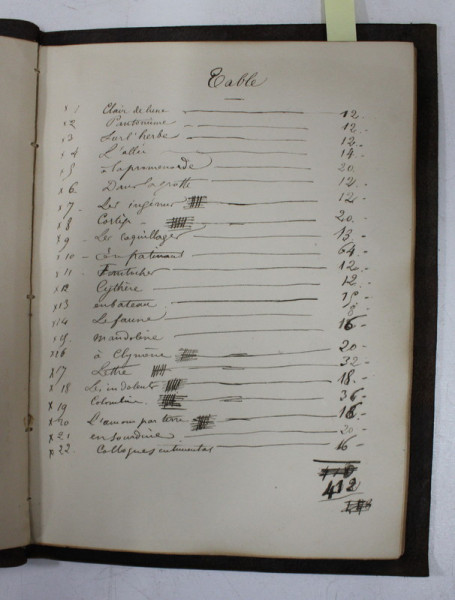 Table
x 1 Clair de lune 12.-
x 2 Pantomime 12.-
x 3 Sur l'herbe 12.-
x 4 L'allée 14.-
x 5 à la promenade 20.
x 6. Dans la grotte 12.-
x 7. Les ingénus 12
x 8 Cortège 20.
x 9 - Les coquillages 13.-
x 10 - En patinant 64.-
x 11 - Fantoches 12
x 12 Cythère 12
x 13 en bateau
x 14 Le faune 8
x 15. mandoline 16-
x 16 à Clymène 20-
x 17 Lettre 32.-
x 18 Les indolents 18.-
x 19 Colombine 36-
x 20 L'amour par terre
x 21 en sourdine 20-
x 22 Colloque sentimental 16-
412